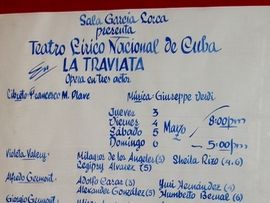 Sala García Lorca
presenta
Teatro Lírico Nacional de Cuba
En
LA TRAVIATA
Opera en tres actos
Libreto: Francesco M. Piave Música Giuseppe Verdi
Jueves 3
Viernes 4 8:00pm
Sábado 5 Mayo
Domingo 6 5:00pm
Violeta Valery: Milagros de los Angeles (3) Sheila Rizo (4.6)
Alvarez (5)
Alfredo Germont: Adolfo Casas (3) Yuri Hernández (4)
Alexander González (5) Humberto Bernal (6)
Giorgio Germont: